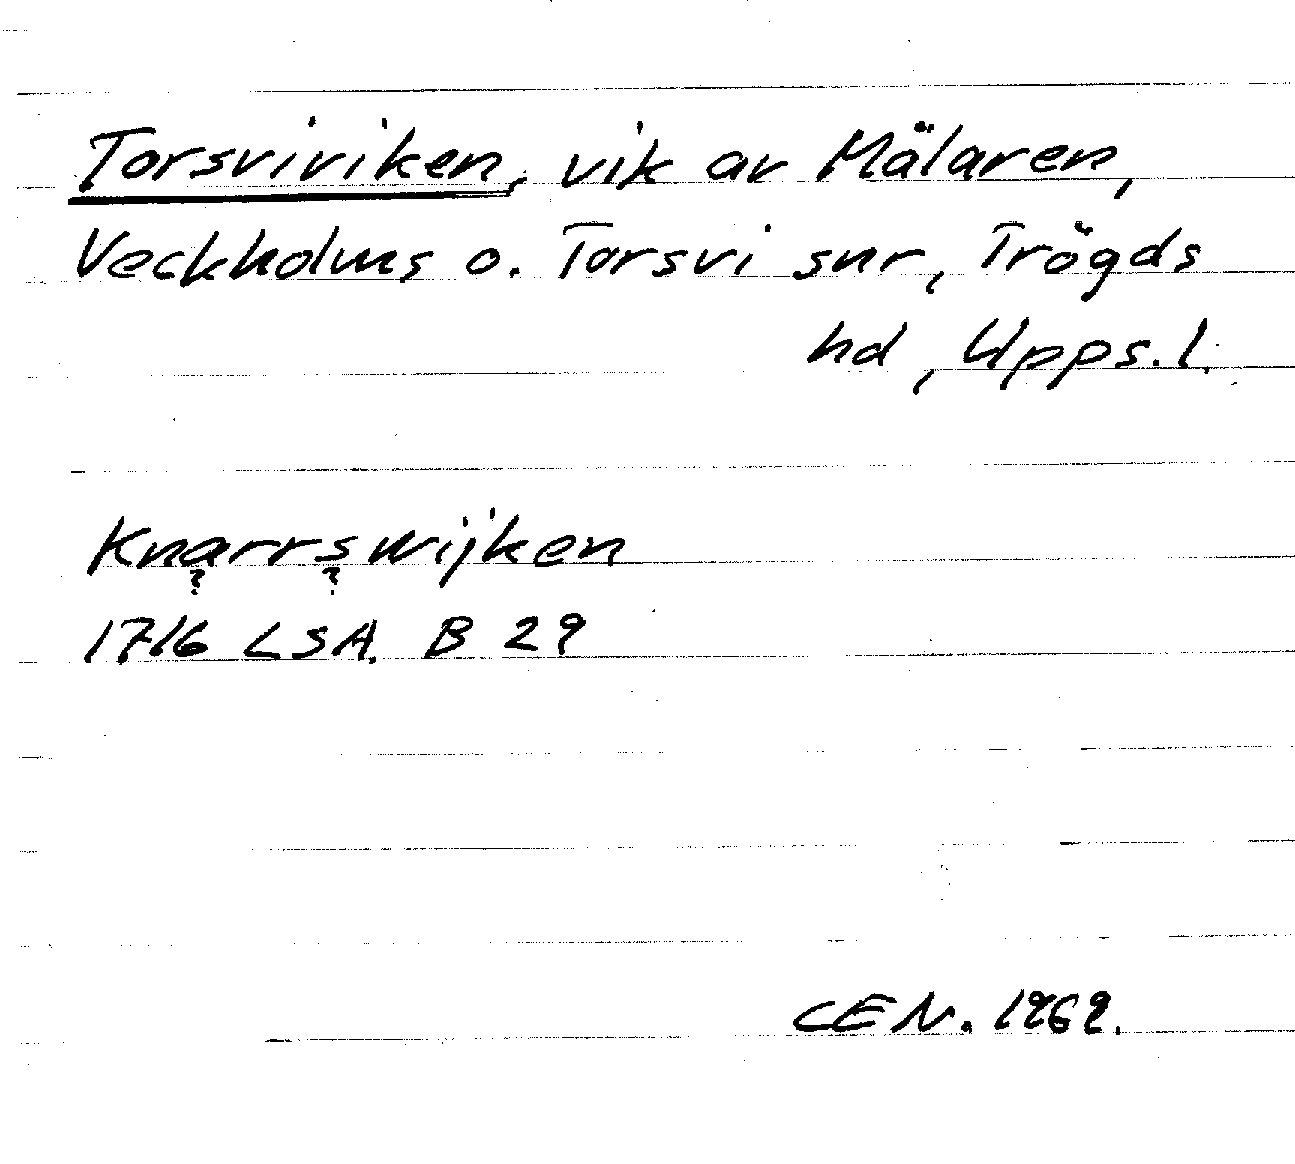 Torsviviken, vik av Mälaren,
Veckholms o. Torsvi snr, Trögds
hd, Upps.l.
Knarrswijken
? ?
1716 LSA. B 29
CEN. 1969.